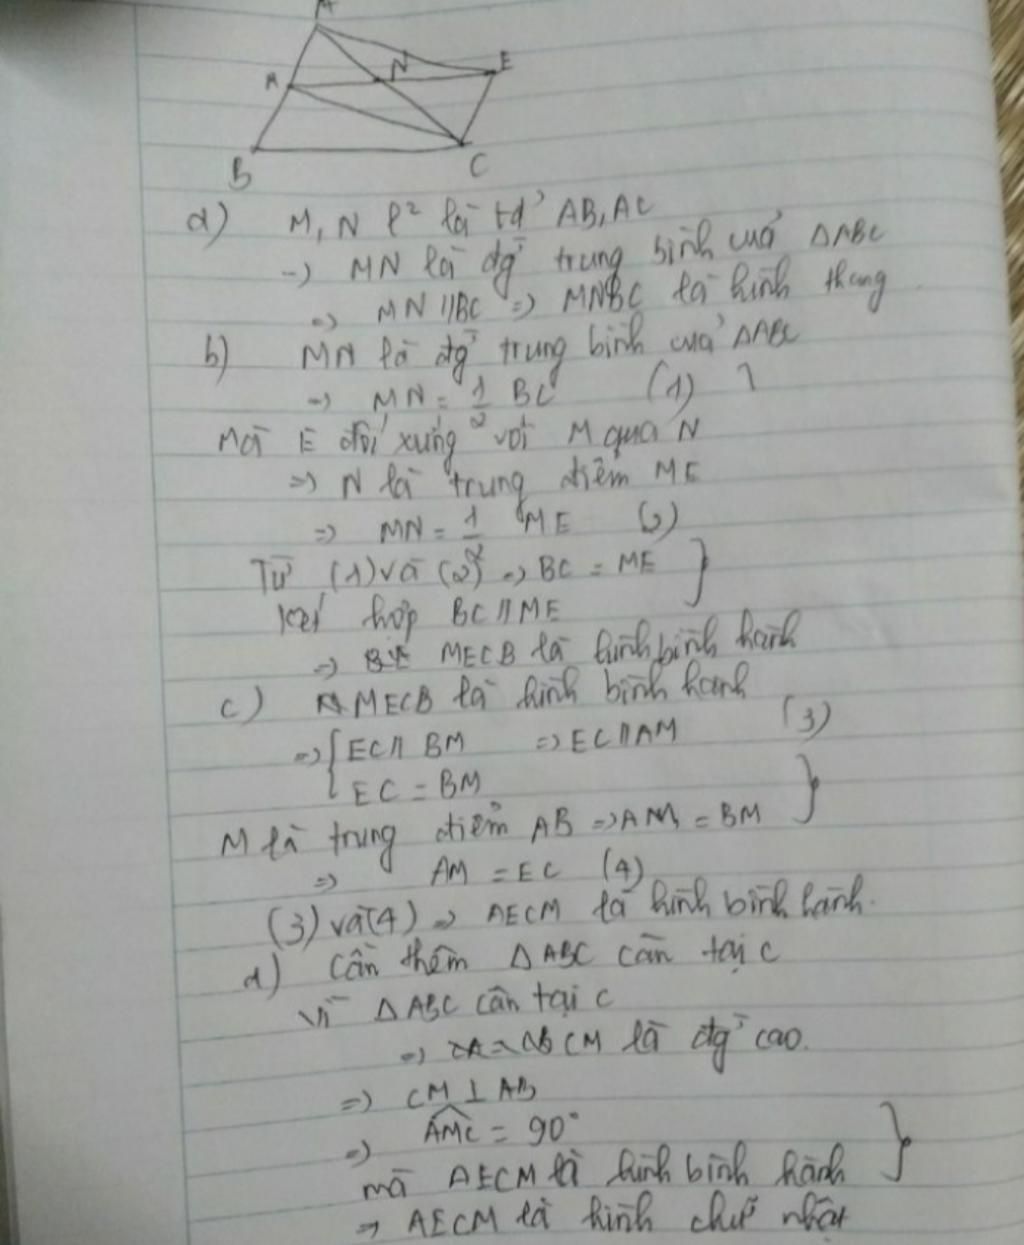 A
M N E
B C
a) M, N l² là tđ' AB, AC
=> MN là đg̀ trung bình cuả ΔABC
=> MN // BC => MNBC là hình thang
b) MN là đg̀ trung bình cuả ΔABC
=> MN = 1/2 BC (1)
Mà E đối xứng với M qua N
=> N là trung điểm ME
=> MN = 1/2 ME (2)
Từ (1) và (2) => BC = ME }
Kết hợp BC // ME
=> MECB là hình bình hành
c) MECB là hình bình hành
=> { EC // BM => EC // AM (3)
EC = BM
M là trung điểm AB => AM = BM }
=> AM = EC (4)
(3) và (4) => AECM là hình bình hành.
d) Cần thêm Δ ABC cân tại C
Vì Δ ABC cân tại C
=> CM là đg̀ cao.
=> CM ⊥ AB
=> AMC = 90°
mà AECM là hình bình hành }
=> AECM là hình chữ nhật